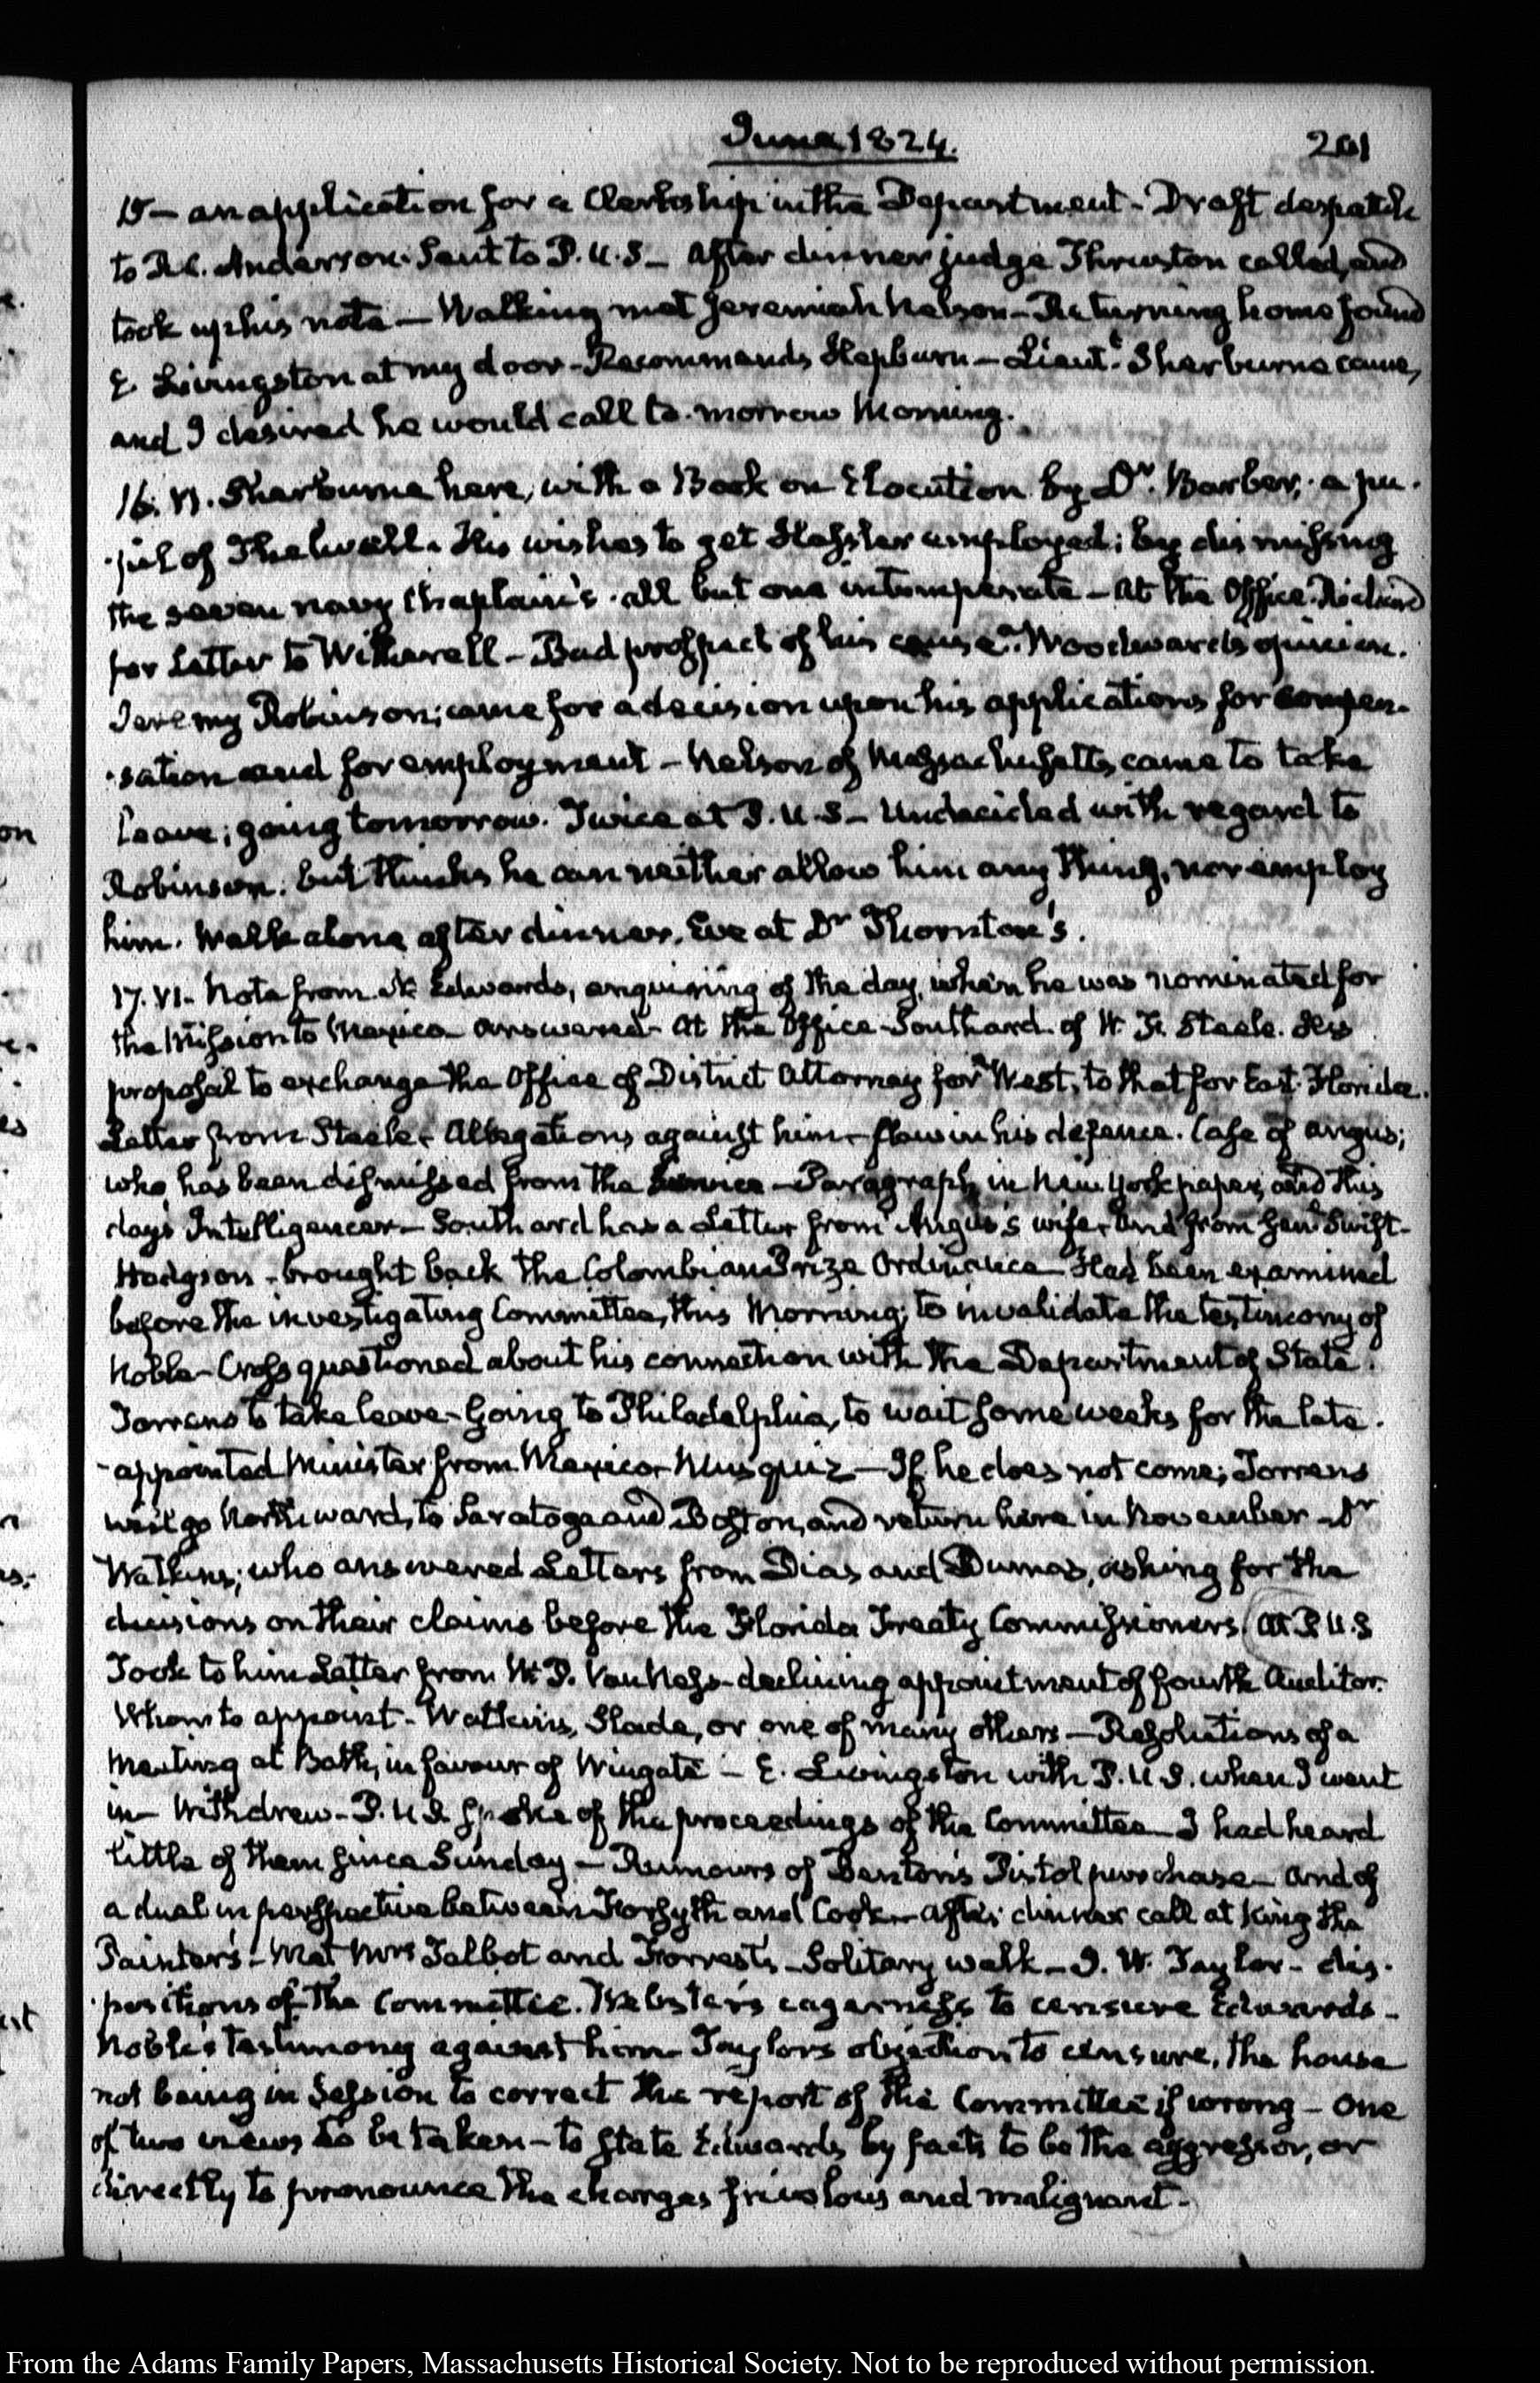 June 1824.
201
15 — an application for a Clerkship in the Department - Draft despatch
to R. C. Anderson. Sent to P. U. S — After dinner judge Thruston called, and
took up his note — Walking met Jeremiah Nelson — Returning home found
E. Livingston at my door - Recommends Hepburn — Lieut.t Sherburne came,
and I desired he would call to-morrow Morning.
16. VI. Sherburne here, with a Book on Elocution by Dr. Barber; a pu-
-pil of Thelwall. His wishes to get Hassler employed; by dismissing
the seven navy Chaplain's. all but one intemperate — At the Office. Richard
for Letter to Witherell — Bad prospect of his cause. Woodward's opinion.
Jeremy Robinson; came for a decision upon his applications for compen-
-sation and for employment — Nelson of Massachusetts came to take
leave; going tomorrow. Twice at P. U. S — Undecided with regard to
Robinson: but thinks he can neither allow him any thing, nor employ
him. Walk alone after dinner. Eve at Dr Thornton's.
17. VI. Note from N. Edwards, enquiring of the day, when he was nominated for
the Mission to Mexico — answered — At the Office — Southard. of W. F. Steele. His
proposal to exchange the Office of District Attorney for West, to that for East Florida.
Letter from Steele — Allegations against him — flaw in his defence. Case of Angus;
who has been dismissed from the Service — Paragraph in New York paper, and this
day's Intelligencer — Southard has a Letter from Angus's wife, and from Genl Swift —
Hodgson — brought back the Colombian Prize Ordinance — Had been examined
before the investigating Committee, this Morning; to invalidate the testimony of
Noble — Cross questioned about his connection with the Department of State.
Torrens to take leave — Going to Philadelphia, to wait some weeks for the late-
-appointed Minister from Mexico — Musquiz — If he does not come; Torrens
will go Northward, to Saratoga and Boston, and return here in November — Dr
Watkins; who answered Letters from Dias and Dumas, asking for the
decisions on their claims before the Florida Treaty Commissioners. (At P. U. S
Took to him Letter from W. P. Van Ness — declining appointment of fourth Auditor.
Whom to appoint — Watkins, Slade, or one of many others — Resolutions of a
Meeting at Bath, in favour of Wingate — E. Livingston with P. U. S. when I went
in — Withdrew — P. U. S. spoke of the proceedings of the Committee — I had heard
little of them since Sunday — Rumours of Benton's Pistol purchase — and of
a duel in perspective between Forsyth and Cook — After dinner call at King the
Painter's — Met Mrs Talbot and Forrests — Solitary walk — J. W. Taylor — dis-
-positions of the Committee. Webster's eagerness to censure Edwards —
Noble's testimony against him — Taylor's objection to censure, the house
not being in Session to correct the report of the Committee if wrong — One
of two views to be taken — to state Edwards by facts to be the aggressor, or
directly to pronounce the charges frivolous and malignant —
From the Adams Family Papers, Massachusetts Historical Society. Not to be reproduced without permission.